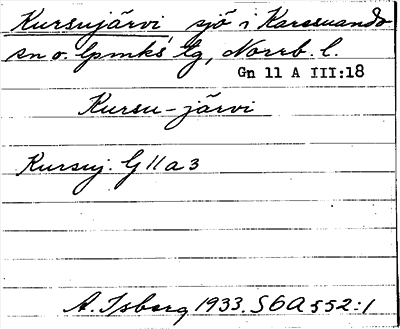 Kursujärvi sjö i Karesuando
sn o. lpmks lg, Norrb. l.
Gn 11 A III:18
Kursu-järvi
Kursuj. G 11 a 3
A. Isberg 1933. S 6 A 552:1